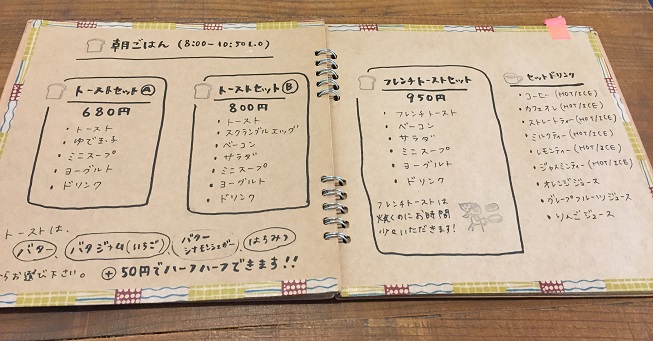 朝ごはん (8:00-10:50L.O)
トーストセットA
680円
・トースト
・ゆで玉子
・ミニスープ
・ヨーグルト
・ドリンク
トーストセットB
800円
・トースト
・スクランブルエッグ
・ベーコン
・サラダ
・ミニスープ
・ヨーグルト
・ドリンク
トーストは、
バター バタジャム(いちご) バターシナモンシュガー はちみつ
からお選び下さい。 +50円でハーフハーフできます!!
フレンチトーストセット
950円
・フレンチトースト
・ベーコン
・サラダ
・ミニスープ
・ヨーグルト
・ドリンク
フレンチトーストは
焼くのにお時間
少々いただきます!
セットドリンク
・コーヒー(HOT/ICE)
・カフェオレ(HOT/ICE)
・ストレートティー(HOT/ICE)
・ミルクティー(HOT/ICE)
・レモンティー(HOT/ICE)
・ジャスミンティー(HOT/ICE)
・オレンジジュース
・グレープフルーツジュース
・りんごジュース